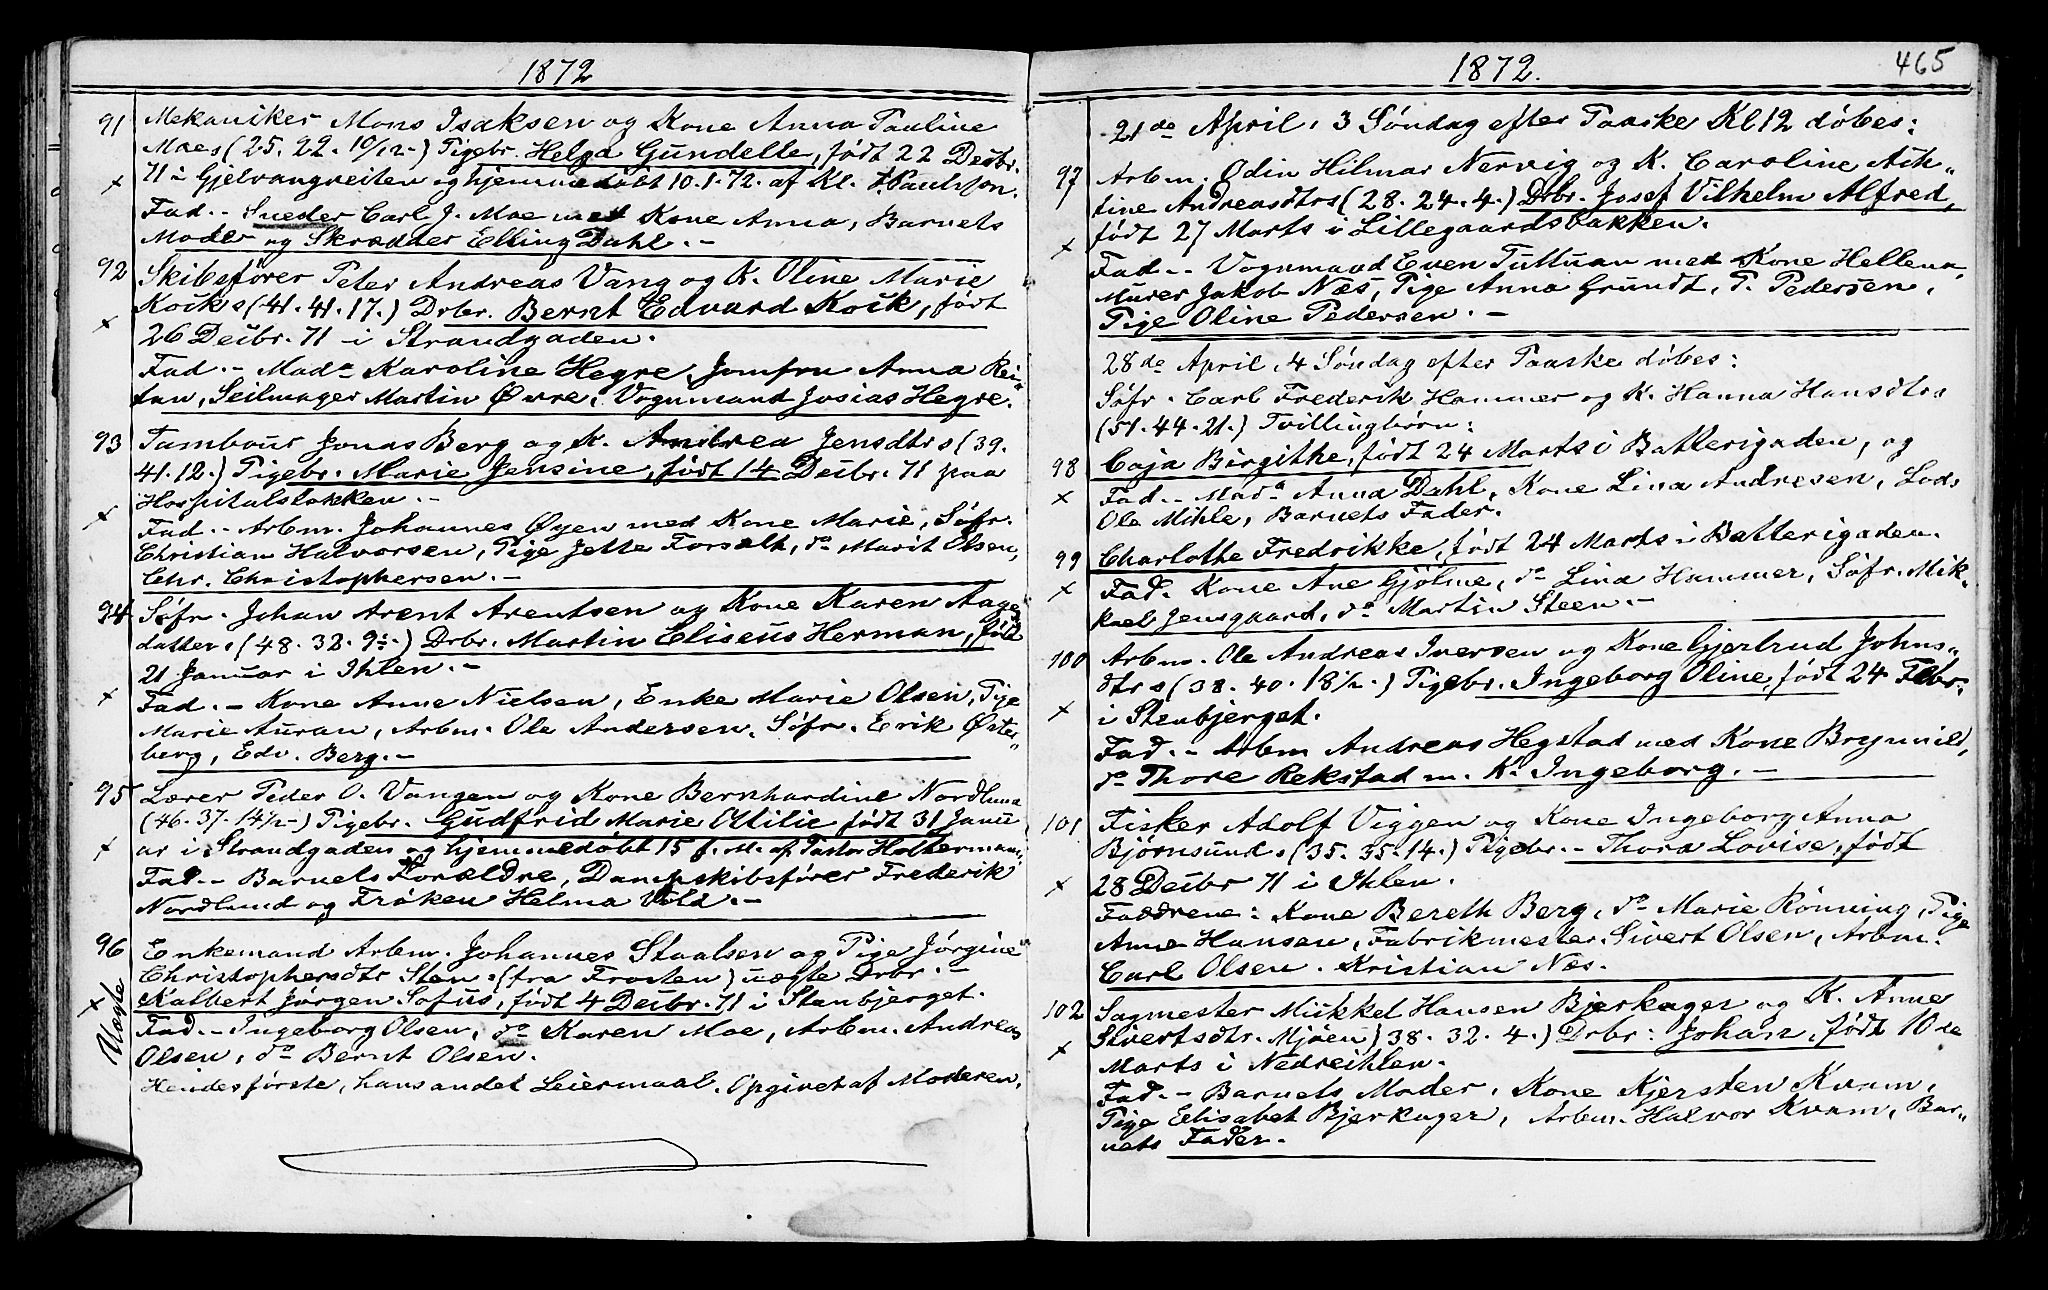 1872
91 Mekaniker Mons Isaksen og Kone Anna Pauline
Moes (25. 22. 10/12-) Pigebr. Helga Gundelle, født 22 Decbr.
71 i Gjelvangveiten og hjemmedøbt 10.1.72. af Kl.
Fad.- Sneder Carl J. Moe med Kone Anna, Barnets
Moder og Skrædder Elling Dahl.-
92 Skibsfører Peter Andreas Vang og K. Oline Marie
Koik s (41. 41. 17.) Drbr. Bernt Edvard Koik, født
26 Decbr. 71 i Strandgaden.
Fad.- Mada Karoline Hegre, Jomfru Anna Rei-
tan, Seilmager Martin Øvre, Vognmand Josias Hegre.
93 Tambour Jonas Berg og K. Andrea Jensdtr s (39.
41. 12.) Pigebr. Marie Jensine, født 14 Decbr. 71 paa
Hospitalsløkken.-
Fad.- Arbm. Johannes Øyen med Kone Marie, Søfr.
Christian Halvorsen, Pige Jette Forseth, do Marit Olsen,
Chr. Christophersen.-
94 Søfr. Johan Arent Arentsen og Kone Karen Aage
datter s (48. 32. 9.-) Drbr. Martin Eliseus Herman, født
21 Januar i Ihlen.-
Fad.- Kone Anne Nielsen, Enke Marie Olsen, Pige
Marie Auran, Arbm. Ole Andersen, Søfr. Erik Øster-
berg, Edv. Berg.-
95 Lærer Peder O. Vangen og Kone Bernhardine Nordlund
(46. 37. 14½-) Pigebr. Gudfrid Marie Ottilie født 31 Janu-
ar i Strandgaden og hjemmedøbt 15 f. M. af Pastor Holtermann,
Fad.- Barnets Forældre, Dampskibsfører Frederik
Nordlund og Frøken Helma Vold.-
96 Enkemand Arbm. Johannes Staalsen og Pige Jørgine
Christophersdtr Sten s (fra Frosten) uægte Drbr.-
Kalbert Jørgen Sofus, født 4 Decbr. 71 i Stenbjerget.
Uægte
Fad.- Ingeborg Olsen, do Karen Moe, Arbm. Andreas
Olsen, do Bernt Olsen.
Hendes første, hans andet Leiermaal. Opgivet af Moderen.
1872. 465
21de April, 3 Søndag efter Paaske Kl 12 døbes:
97 Arbm. Odin Hilmar Nervig og K. Caroline Ak-
tine Andreasdtr s (28. 24. 4.) Drbr. Josef Vilhelm Alfred,
født 27 Marts i Lillegaardsbakken.
Fad.- Vognmand Even Tuttuan med Kone Hellena,
Murer Jakob Næs, Pige Anna Grundt, P. Pedersen,
Pige Oline Pedersen.-
28de April, 4 Søndag efter Paaske døbes:
Søfr. Carl Frederik Hammer og K. Hanna Hansdtr s
(51. 44. 21.) Tvillingbørn:
98 Caja Birgithe, født 24 Marts i Batterigaden, og
Fad.- Mada Anna Dahl, Kone Lina Andresen, Lods
Ole Mihle, Barnets Fader.
99 Charlotte Fredrikke, født 24 Marts i Batterigaden.
Fad. Kone Ane Gjølme, do Lina Hammer, Søfr. Mik-
kael Jensgaard, do Martin Steen.-
100 Arbm. Ole Andreas Iversen og Kone Gjertrud Johns-
dtr s (38. 40. 18½-) Pigebr. Ingeborg Oline, født 24 Febr.
i Stenbjerget.
Fad.- Arbm Andreas Hegstad med Kone Brynnild,
do Thore Rekstad m. Ke Ingeborg.-
101 Fisker Adolf Viggen og Kone Ingeborg Anna
Bjørnsund s (35. 35. 14.) Pigebr.- Thora Lovise, født
28 Decbr 71 i Ihlen.
Faddrene: Kone Bereth Berg, do Marie Rønning, Pige
Anne Hansen, Fabrikmester Sivert Olsen, Arbm.
Carl Olsen. Kristian Næs.
102 Sagmester Mikkel Hansen Bjerkager og K. Anne
Sivertsdtr. Mjøen) 38. 32. 4.) Drbr: Johan, født 10de
Marts i Nedreihlen.
Fad.- Barnets Moder, Kone Kjersten Kvam,
Pige Elisabet Bjerkager, Arbm. Halvor Kvam, Bar-
nets Fader.-